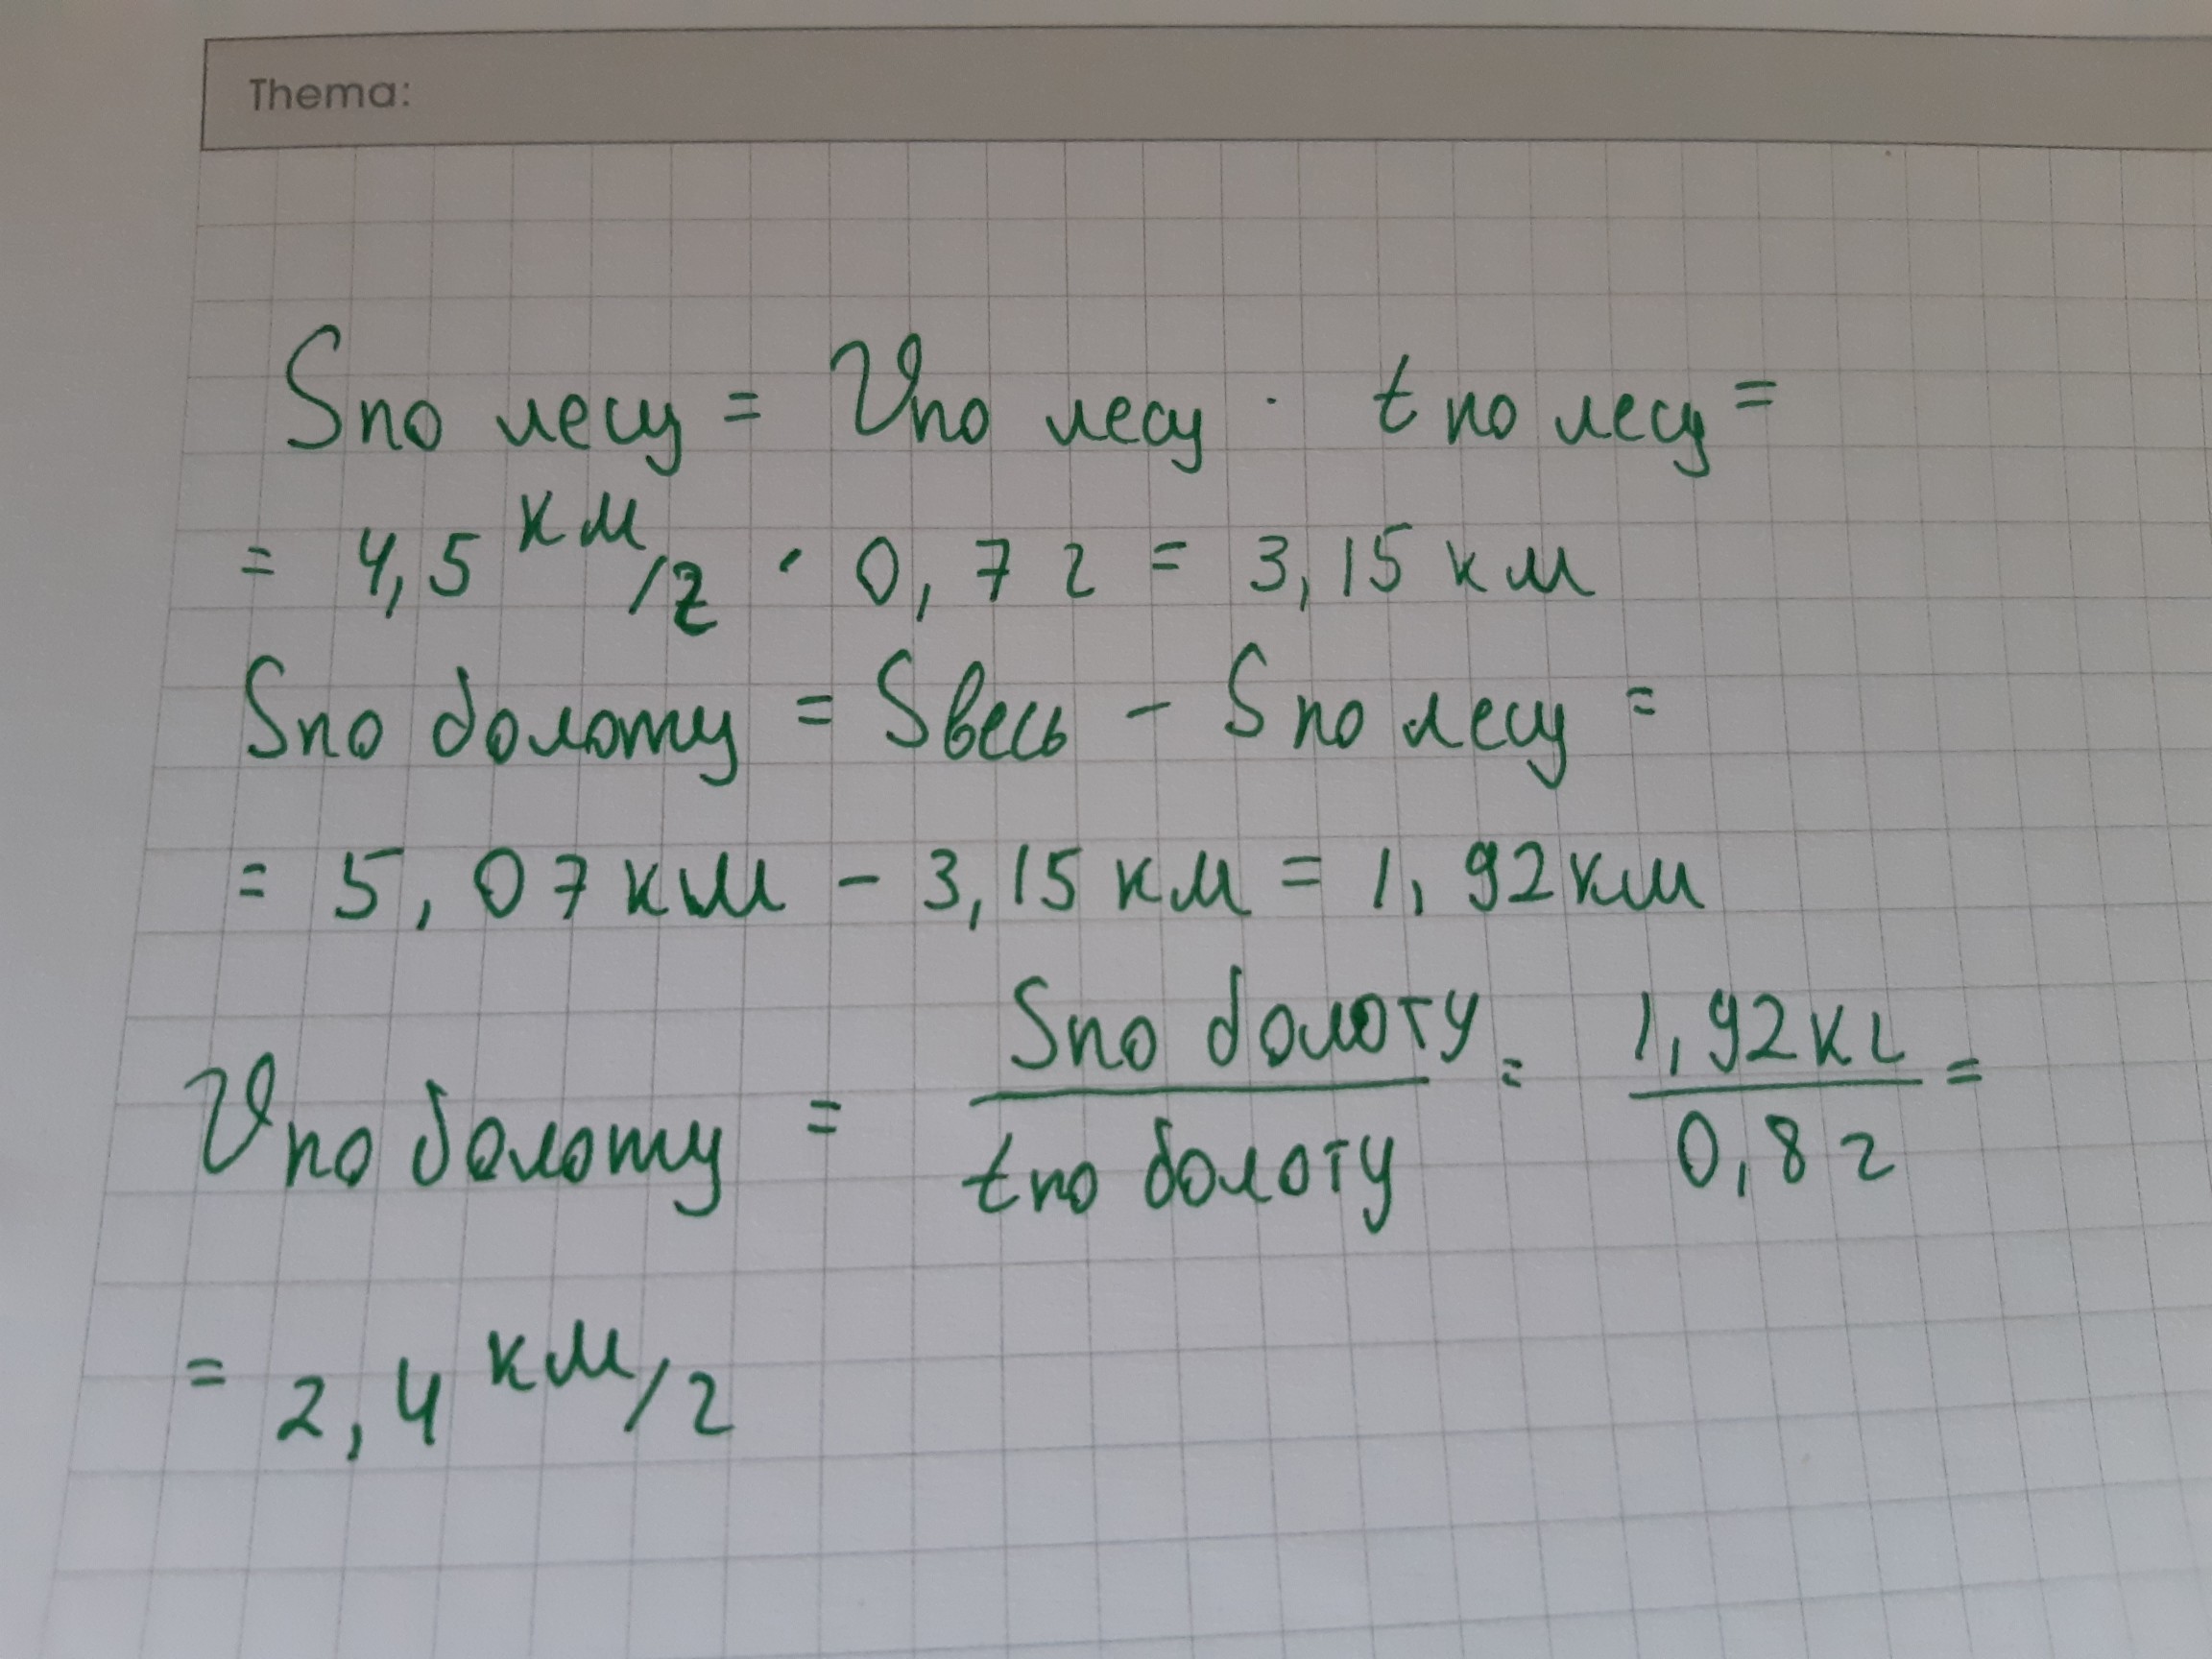 Thema:
Sпо лесу = Vпо лесу · t по лесу =
= 4,5 км/г · 0,7 г = 3,15 км
Sпо болоту = Sвесь - S по лесу =
= 5,07 км - 3,15 км = 1,92 км
Vпо болоту = Sпо болоту / tпо болоту = 1,92 кг / 0,8 г =
= 2,4 км/г